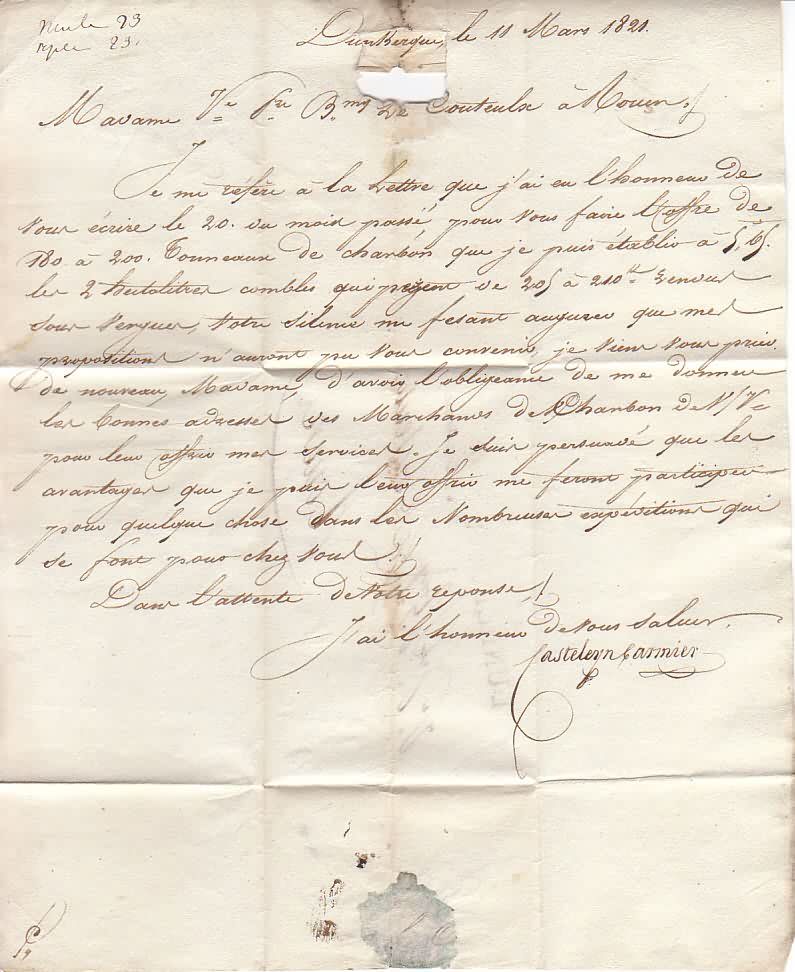 23
23.
Dunkerque, le 11 Mars 1821.
Madame Ve Bmy Le Couteulx à Rouen,
Je me réfère à la Lettre que j'ai eu l'honneur de
vous écrire le 20. du mois passé, pour vous faire l'offre de
180. à 200. Tonneaux de charbon que je puis établir à
les 2 hectolitres combles qui pèsent de 205 à 210 rendus
sous vergues, Votre silence me fesant augurer que mes
propositions n'auront pu vous convenir, je viens vous prier
de nouveau, Madame, d'avoir l'obligeance de me donner
les bonnes adresses des Marchands de Charbon de V/ Ve
pour leur offrir mes services. Je suis persuadé que les
avantages que je puis leur offrir me feront participer
pour quelque chose dans les Nombreuses expéditions qui
se font pour chez vous.
Dans l'attente de Votre réponse,
J'ai l'honneur de vous saluer,
Casteleyn Carmier